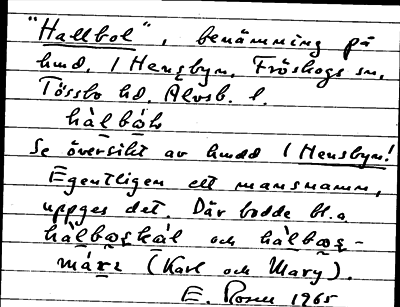 "Hallbol", benämning på
hmd. 1 Hensbyn, Fröskogs sn,
Tössbo hd, Älvsb. l.
hàlbòl
Se översikt av hmdd 1 Hensbyn!
Egentligen ett mansnamn,
uppges det. Där bodde bl.a.
och
(Karl och Mary).
E. Rosen 1965